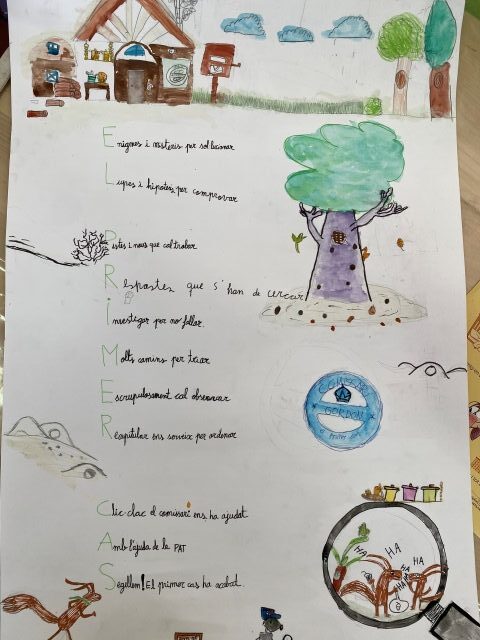 Enigmes i misteris per solucionar
Lupes i hipòtesis per comprovar
Pistes i nous que cal trobar
Respostes que s'han de cercar
Investigar per no fallar.
Molts camins per triar
Escrupulosament cal observar
Recapitular ens serveix per ordenar
COMISSARI
GORDON
Clic clac el comissari ens ha ajudat
Amb l'ajuda de la PAT
Segellem! El primer cas ha acabat.
HA
HA
HA
HA